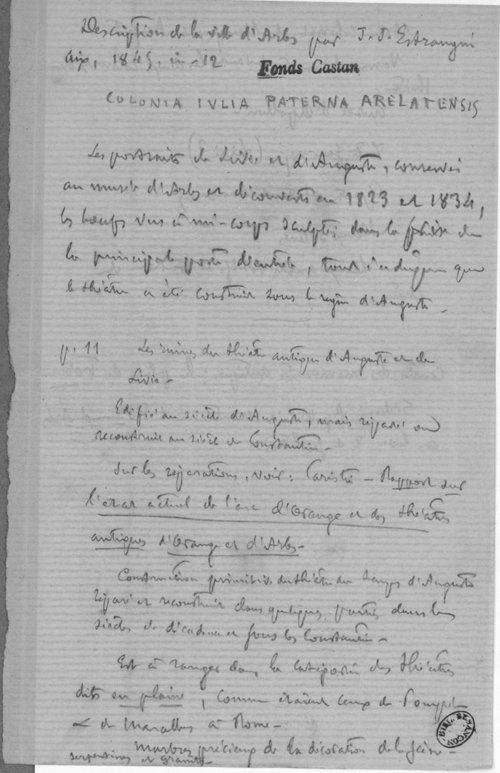 Description de la ville d'Arles par J. J. Estrangin
Aix, 1845, in-12
Fonds Castan
COLONIA IVLIA PATERNA ARELATENSIS
Les portraits de Livie et d'Auguste, conservés
au musée d'Arles et découverts en 1823 et 1834,
les bœufs vus à mi-corps sculptés dans la frise de
la principale porte d'entrée, tout indique que
le théâtre a été construit sous le règne d'Auguste.
p. 11 Les ruines du théâtre antique d'Auguste et de
Livie.
Edifié au siècle d'Auguste, mais réparé ou
reconstruit au siècle de Constantin.
Sur les réparations, voir : Caristie - Rapport sur
l'état actuel de l'arc d'Orange et des théâtres
antiques d'Orange et d'Arles.
Construction primitive du théâtre au temps d'Auguste
réparé et reconstruit dans quelques parties dans les
siècles de décadence sous les Constantin.
Est à ranger dans la catégorie des théâtres
dits en plaine, comme étaient ceux de Pompée
et de Marcellus à Rome.
Marbres précieux de la décoration de la scène.
serpentines et granits.
BIBL. BESANÇON